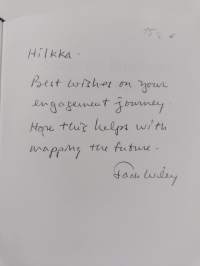 Hilkka -
Best wishes on your
engagement journey.
Hope this helps with
mapping the future.
Jack Wiley